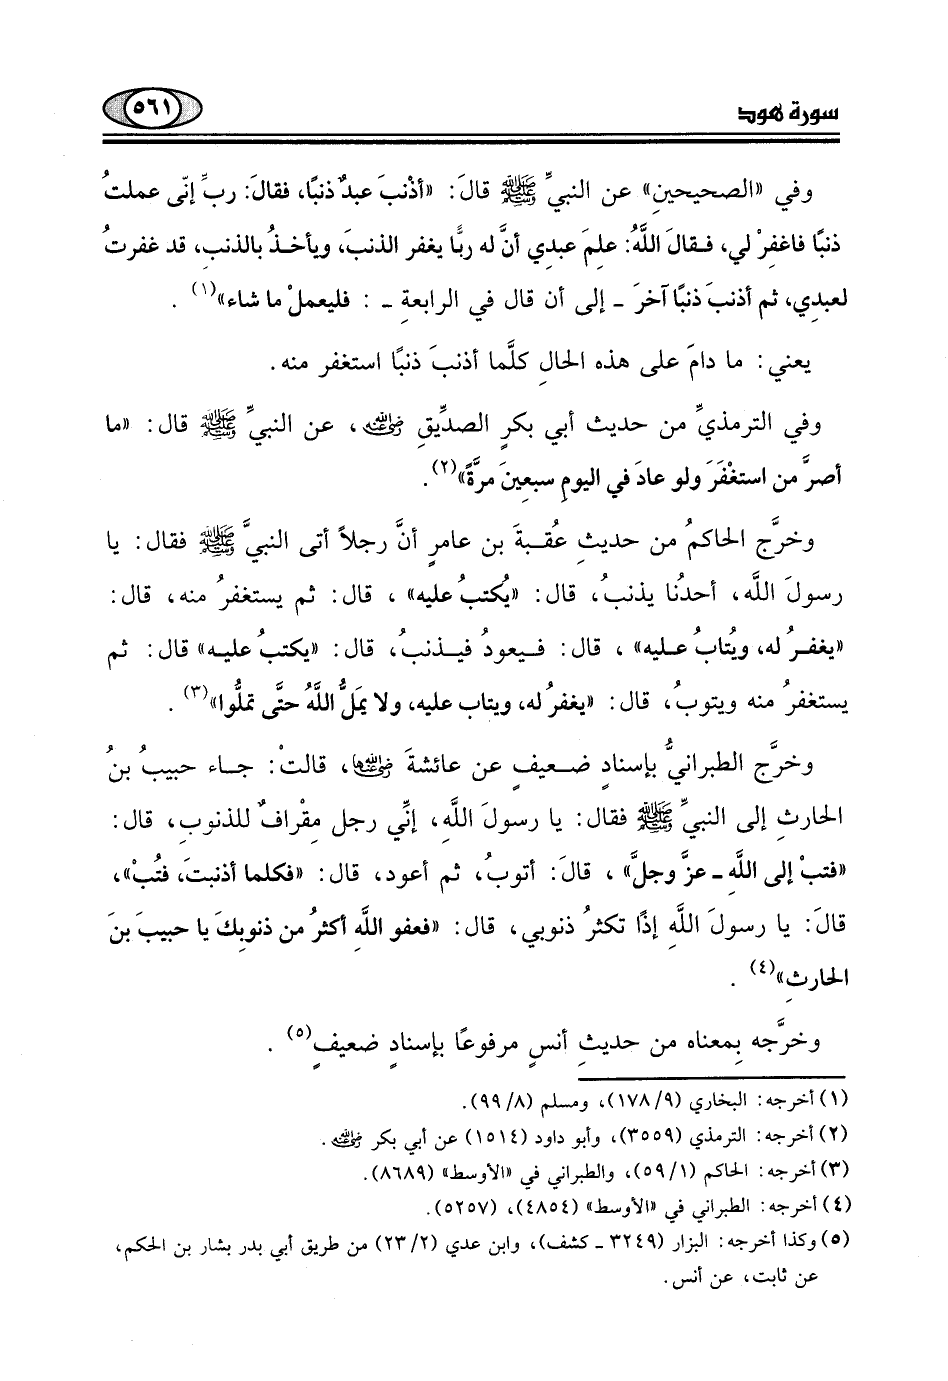 سورة هود
٥٦١
وفي «الصحيحين» عن النبيِّ ﷺ قالَ: «أذْنبَ عبدٌ ذنبًا، فقالَ: ربِّ إنّي عملتُ
ذنبًا فاغفِرْ لي، فقالَ اللَّهُ: علِمَ عبدِي أنَّ له ربًّا يغفر الذنبَ، ويأخذُ بالذنبِ، قد غفرتُ
لعبدِي، ثم أذنبَ ذنبًا آخرَ ـ إلى أن قال في الرابعةِ ـ : فليعملْ ما شاء»(١) .
يعني: ما دامَ على هذه الحالِ كلَّما أذنبَ ذنبًا استغفر منه.
وفي الترمذيِّ من حديث أبي بكرٍ الصديِّقِ رضي الله عنه، عن النبيِّ ﷺ قال: «ما
أصرَّ من استغْفَرَ ولو عادَ في اليومِ سبعينَ مرَّةً»(٢).
وخرَّج الحاكمُ من حديثِ عُقبةَ بن عامرٍ أنَّ رجلاً أتى النبيَّ ﷺ فقال: يا
رسولَ اللَّه، أحدُنا يذنبُ، قال: «يُكتبُ عليه» ، قال: ثم يستغفرُ منه، قال:
«يغفرُ له، ويُتابُ عليه» ، قال: فيعودُ فيذنبُ، قال: «يكتبُ عليه» قال: ثم
يستغفرُ منه ويتوبُ، قال: «يغفرُ له، ويتاب عليه، ولا يَملُّ اللَّهُ حتَّى تملُّوا»(٣) .
وخرَّج الطبرانيُّ بإسنادٍ ضعيفٍ عن عائشةَ رضي الله عنها، قالتْ: جاء حبيبُ بنُ
الحارثِ إلى النبيِّ ﷺ فقال: يا رسولَ اللَّهِ، إنِّي رجل مِقْرافٌ للذنوبِ، قال:
«فتبْ إلى اللَّهِ ـ عزَّ وجلَّ» ، قالَ: أتوبُ، ثم أعود، قال: «فكلما أذنبتَ، فتُبْ»،
قالَ: يا رسولَ اللَّهِ إذًا تكثرُ ذنوبي، قال: «فعفو اللَّهِ أكثرُ من ذنوبِكَ يا حبيبَ بنَ
الحارثِ»(٤) .
وخرَّجه بِمعناه من حديثِ أنسٍ مرفوعًا بإسنادٍ ضعيفٍ(٥) .
(١) أخرجه: البخاري (١٧٨/٩)، ومسلم (٩٩/٨).
(٢) أخرجه: الترمذي (٣٥٥٩)، وأبو داود (١٥١٤) عن أبي بكر رضي الله عنه.
(٣) أخرجه: الحاكم (٥٩/١)، والطبراني في «الأوسط» (٨٦٨٩).
(٤) أخرجه: الطبراني في «الأوسط» (٤٨٥٤)، (٥٢٥٧).
(٥) وكذا أخرجه: البزار (٣٢٤٩ ـ كشف)، وابن عدي (٢٣/٢) من طريق أبي بدر بشار بن الحكم،
عن ثابت، عن أنس.